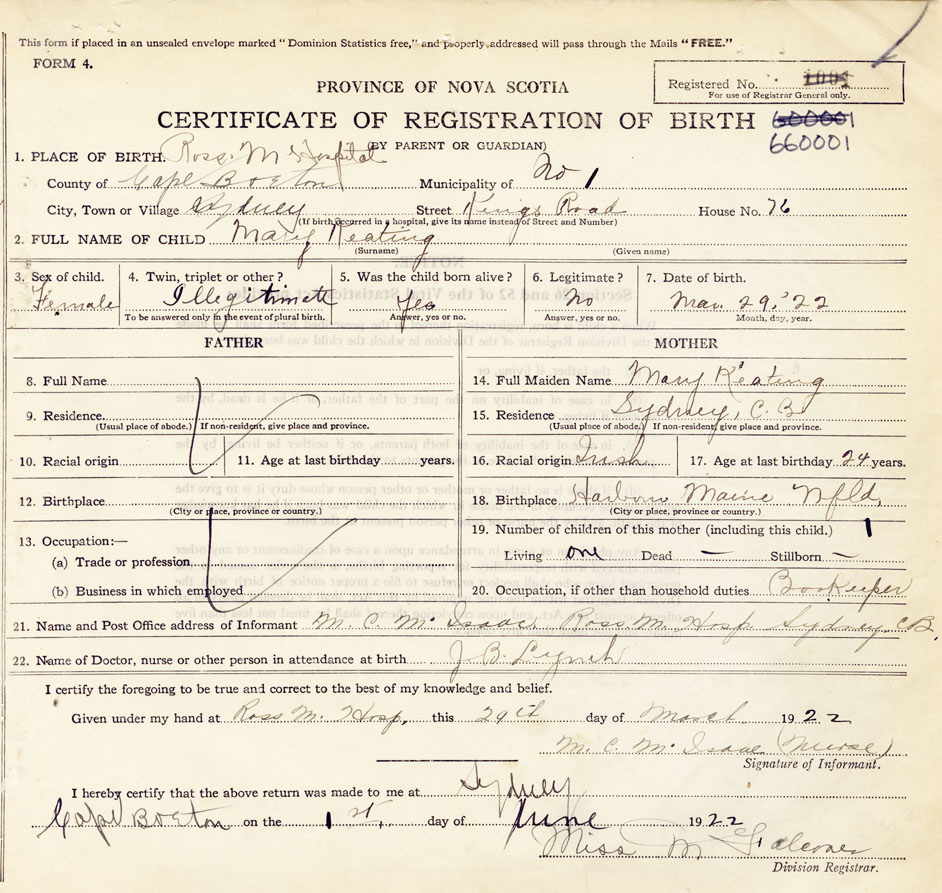 This form if placed in an unsealed envelope marked "Dominion Statistics free," and properly addressed will pass through the Mails "FREE."
FORM 4.
Registered No. 1001
For use of Registrar General only.
PROVINCE OF NOVA SCOTIA
CERTIFICATE OF REGISTRATION OF BIRTH 600001
660001
(BY PARENT OR GUARDIAN)
1. PLACE OF BIRTH. Ross. M Hospital
County of Cape Breton Municipality of No 1
City, Town or Village Sydney Street Kings Road House No. 76
(If birth occurred in a hospital, give its name instead of Street and Number)
2. FULL NAME OF CHILD Mary Keating
(Surname) (Given name)
3. Sex of child. 4. Twin, triplet or other? 5. Was the child born alive? 6. Legitimate? 7. Date of birth.
Female Illegitimate Yes No Mar. 29. '22
To be answered only in the event of plural birth. Answer, yes or no. Answer, yes or no. Month, day, year.
FATHER MOTHER
8. Full Name 14. Full Maiden Name Mary Keating
9. Residence. 15. Residence Sydney, C. B.
(Usual place of abode.) If non-resident, give place and province. (Usual place of abode.) If non-resident, give place and province.
10. Racial origin 11. Age at last birthday years. 16. Racial origin Irish 17. Age at last birthday 24 years.
12. Birthplace 18. Birthplace Harbour Maine Nfld,
(City or place, province or country.) (City or place, province or country.)
13. Occupation:— 19. Number of children of this mother (including this child.) 1
(a) Trade or profession Living one Dead — Stillborn —
(b) Business in which employed 20. Occupation, if other than household duties Bookeeper
21. Name and Post Office address of Informant M. C. Mc Isaac Ross M. Hosp Sydney CB,
22. Name of Doctor, nurse or other person in attendance at birth J B. Lynch
I certify the foregoing to be true and correct to the best of my knowledge and belief.
Given under my hand at Ross M. Hosp. this 29th day of March 1922
M. C. Mc Isaac (Nurse)
Signature of Informant.
I hereby certify that the above return was made to me at Sydney
Cape Breton on the 1 st. day of June 1922
Miss M Falconer
Division Registrar.